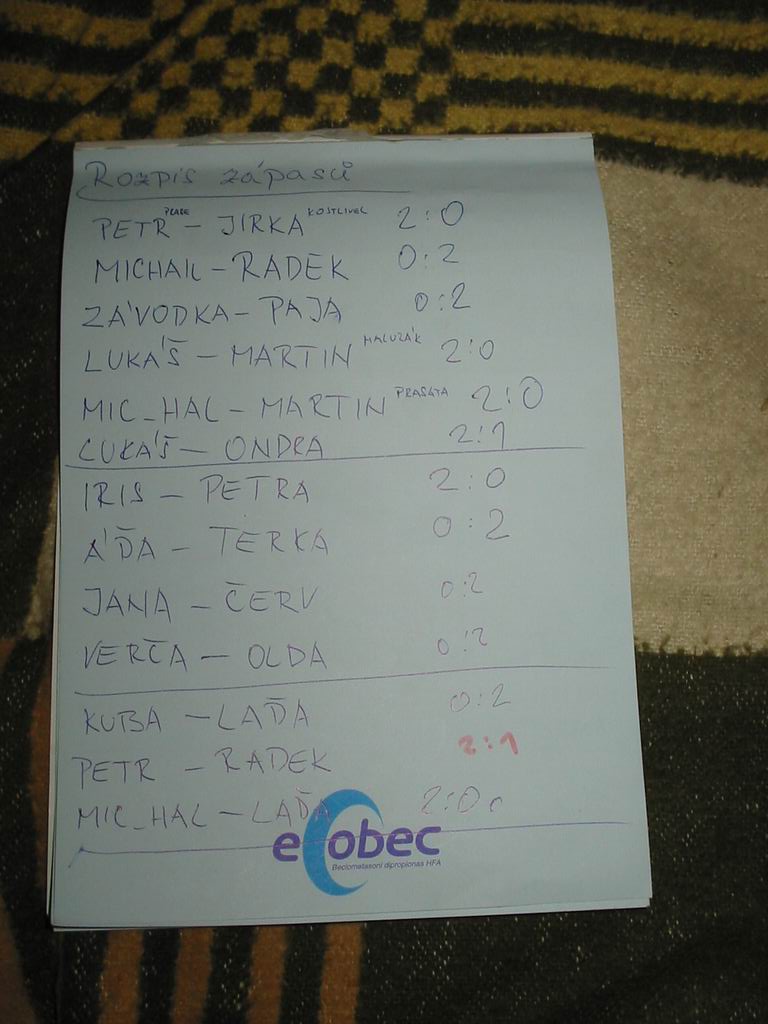 Rozpis zápasů
PETR – JIRKA KOSTLIVEC 2:0
MICHAL – RADEK 0:2
ZÁVODKA – PAJA 0:2
LUKÁŠ – MARTIN MALUZÁK 2:0
MIC_HAL – MARTIN 2:0
LUKÁŠ – ONDRA 2:1
IRIS – PETRA 2:0
ÁĎA – TERKA 0:2
JANA – ČERV 0:2
VERČA – OLDA 0:2
KUBA – LAĎA 0:2
PETR – RADEK 2:1
MIC_HAL – LAĎA 2:0
ecobec
Beclometasoni dipropionas HFA